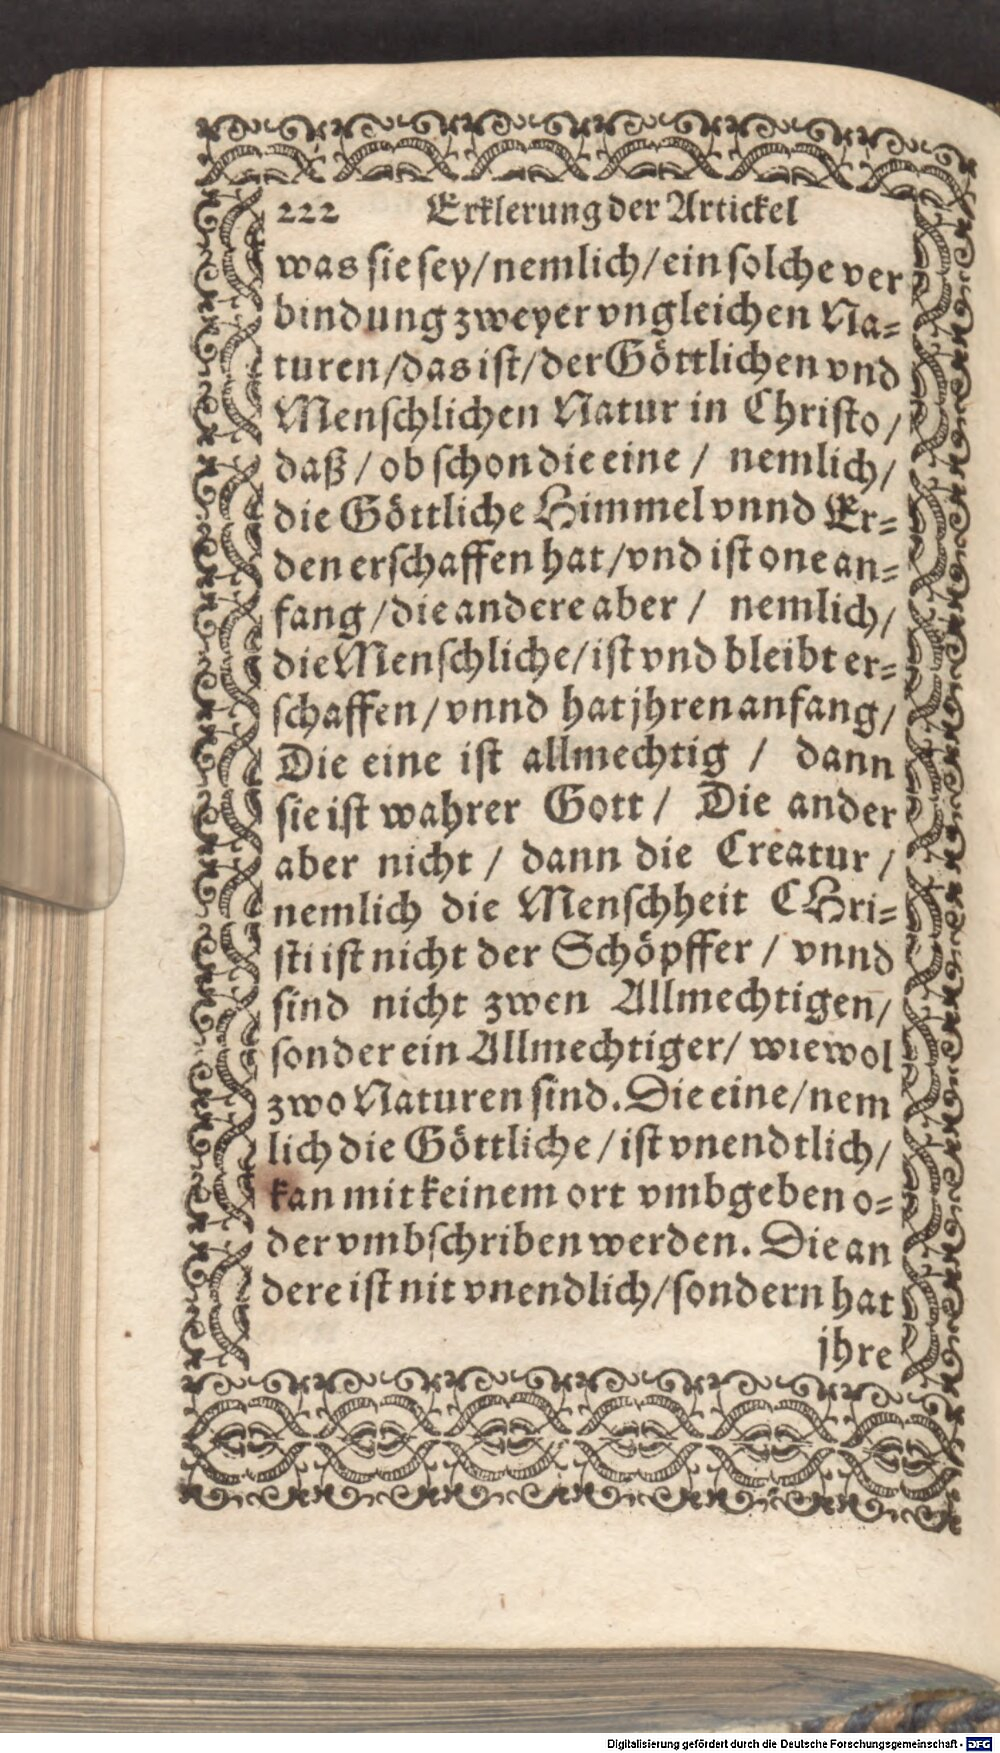 222 Erklerung der Artickel
was sie sey/ nemlich/ ein solche ver
bindung zweyer vngleichen Na-
turen/ das ist/ der Göttlichen vnd
Menschlichen Natur in Christo/
daß/ ob schon die eine/ nemlich/
die Göttliche Himmel vnnd Er-
den erschaffen hat/ vnd ist one an-
fang/ die andere aber/ nemlich/
die Menschliche/ ist vnd bleibt er-
schaffen/ vnnd hat jhren anfang/
Die eine ist allmechtig/ dann
sie ist wahrer Gott/ Die ander
aber nicht/ dann die Creatur/
nemlich die Menschheit CHri-
sti ist nicht der Schöpffer/ vnnd
sind nicht zwen Allmechtigen/
sonder ein Allmechtiger/ wiewol
zwo Naturen sind. Die eine/ nem
lich die Göttliche/ ist vnendtlich/
kan mit keinem ort vmbgeben o-
der vmbschriben werden. Die an
dere ist nit vnendlich/ sondern hat
jhre
Digitalisierung gefördert durch die Deutsche Forschungsgemeinschaft - DFG